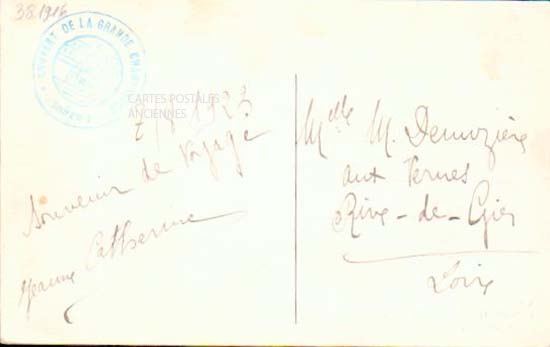 38.1916
COUVENT DE LA GRANDE CHAR
CARTES POSTALES
ANCIENNES
2/8 1923
Souvenir de Voyage
Jeanne Catherine
Melle M. Demozière
aux Vernes
Rive-de-Gier
Loire